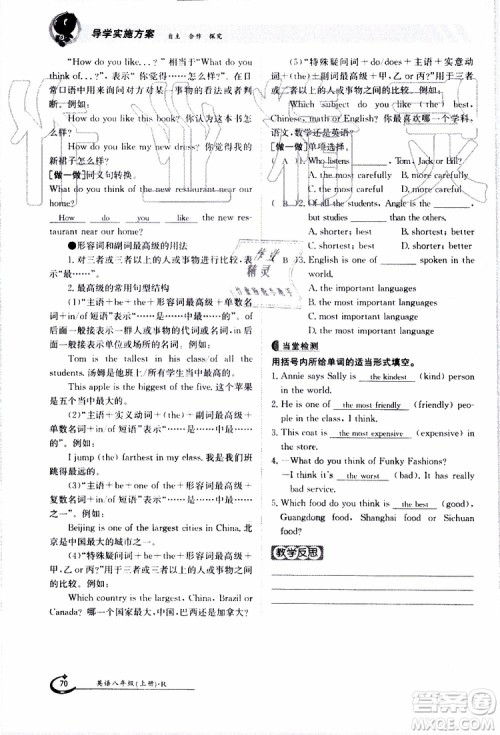 导学实施方案 自主 合作 探究
"How do you like...?"或"What do you
think of...?",表示"你觉得……怎么样?"在
日常口语中用来询问对方对某人、事物的看法
或观点。如:
How do you like this book? 你觉得这本书
怎么样?
How do you like my new dress? 你觉得我的
新裙子怎么样?
[做一做]同义句转换。
What do you think of the new restaurant near our
home?
How do you like the new res-
taurant near our home?
●形容词和副词最高级的用法
1. 对三者或三者以上的人或事物进行比较,表
示"最……"。
2. 最高级的常用句型结构
(1)"主语+be+the+形容词最高级+单数名
词+in/of 短语"表示"……是……中最……的"。of
后面一般接表示一定范围的名词或数词,in 后面
一般接表示单位或场所的名词。
Tom is the tallest in his class/of all the
students. 汤姆是他们班上/所有学生当中最高的。
This apple is the biggest of the five. 这个苹果
是五个当中最大的。
(2)"主语+实义动词+(the)+副词最高级+
单数名词+in/of 短语"表示"……是……中最……
的"。
I jump (the) farthest in my class. 我是我们班
跳得最远的。
(3)"主语+one of+the+形容词最高级+
复数名词+in/of 短语"表示"……是……中最……
之一"。
Beijing is one of the largest cities in China.
北京是中国最大的城市之一。
(4)"特殊疑问词+be+the+形容词最高级+
甲,乙,or 丙?"用于三者或三者以上的人或事物的
比较。
Which country is the largest, China, Brazil or
Canada? 哪一个国家最大,中国、巴西还是加拿大?
(5)"特殊疑问词+助动词+主语+实意动
词+(the)+副词最高级,甲,乙 or 丙?"用于三者
或三者以上的人或事物的比较。
Which subject do you like (the) best,
Chinese, math or English? 你最喜欢哪一学科,
语文,数学还是英语?
[做一做]单项选择。
( A )1. Who listens, Tom, Jack or Bill?
A. the most carefully B. more careful
C. the most careful
( B )2. Of all the students, Ann is but studies
than the others.
A. shortest; best B. shortest; better
C. shorter; better
( B )3. English is one of spoken in the
world.
A. the important languages
B. the most important languages
C. most important language
D. the most important language
当堂检测
用括号内所给单词的适当形式填空。
1. Annie says Sally is the kindest (kind) person in
the world.
2. He is the most friendly (friendly) person of
us all, I think.
3. This coat is the most expensive (expensive) in
the store.
4. —What do you think of Funky Fashions?
—I think it is the worst (bad) It has really
bad service.
5. Which food do you think is the best (good),
Guangdong food, Shanghai food or Sichuan
food?
教学反思
70 英语八年级(上册)·R
作业
精灵